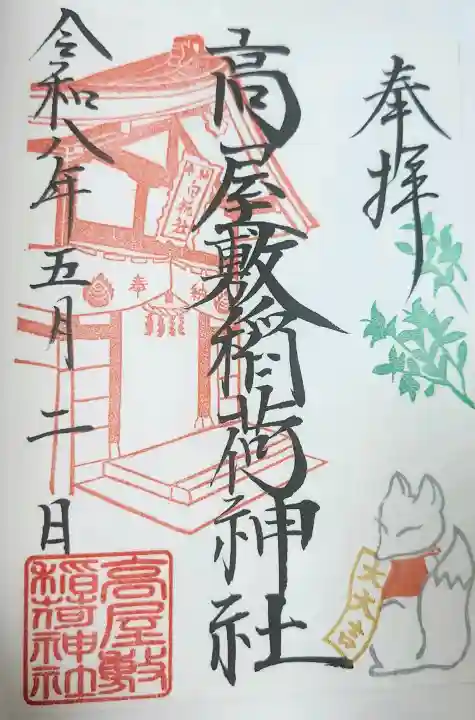 奉拝
高屋敷稲荷神社
令和八年五月二日
奉
納
大大吉
高屋敷
稲荷神社